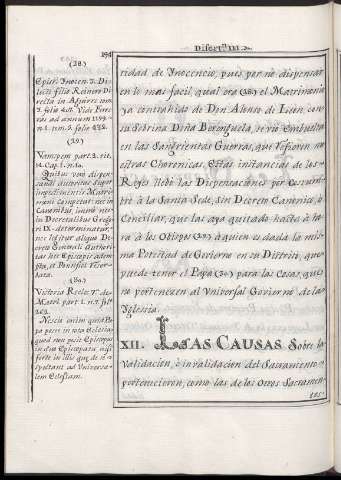 194
Disert.ⁿ III.
(28.)
Epist. Inocen. 3. Di
lecti filio Reinero Di
recta in Aguirre tom.
3. folio 428. Vide Ferre
ras ad annum 1199.
n. 1. tom. 5. folio 272.
(29.)
Vanespem part. 2. tit.
14. Cap. 1. n. 10.
Quibus vero dispen
sandi autoritas super
impedimentis Matri
monij competat: nec in
Canonibus, immo nec
in Decretalibus Grego
rij IX. determinatur,
nec legitur aliquo De
creto Generali Authori
tas hec Episcopis adem
pta, et Pontifici reser
bata.
(30.)
Victoria Relect. T. de
Matri. part. 1. n. 3. fol.
259.
Nescio enim quid Pa
pa possit in tota Eclesia,
quod non posit Episcopus
in suo Episcopatu, nisi
forte in illis que de
spectant ad Universa
lem Eclesiam.
ridad de Ynocencio, pues por no dispensar
en lo mas facil, qual era (28) el Matrimonio
ya contrahido de Don Alonso de Leon, con
su Sobrina Doña Berenguela, se vio embuelto
en las Sangrientas Guerras, que refieren nu
estras Choronicas. Estas instancias de los
Reyes llebó las Dispensaciones por costum
bre á la Santa Sede, sin Decreto Canonico, ó
Conciliar, que las aya quitado hasta á ho
ra á los Obispos (29) á quien es dada la mis
ma Potestad de Govierno en su Distrito, que
puede tener el Papa (30) para las Cosas, que
no pertenezen al Universal Govierno de la
Yglesia.
XII. LAS CAUSAS Sobre la
validacion, ó invalidacion del Sacramento
pertenecieron, como las de los Otros Sacramen-
tos.